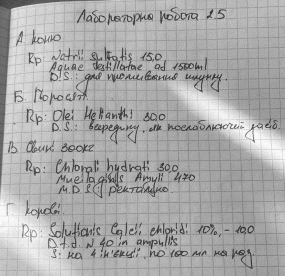 Лабораторна робота 25
А. Коню
Rp: Natrii sulfatis 15,0
Aquae destillatae ad 1500 ml
D.S.: для промивання шлунку.
Б. Поросяті
Rp: Olei Helianthi 30,0
D.S.: всередину, як послаблюючий засіб.
В. Свині
Rp: Chlorali hydrati 30,0
Mucilaginis Amyli 470
M.D.S.: ректально.
Г. Корові
Rp: Solutionis Calcii chloridi 10% - 10,0
D.t.d. N 40 in ampullis
S: на 4 ін'єкції, по 100 мл на раз.